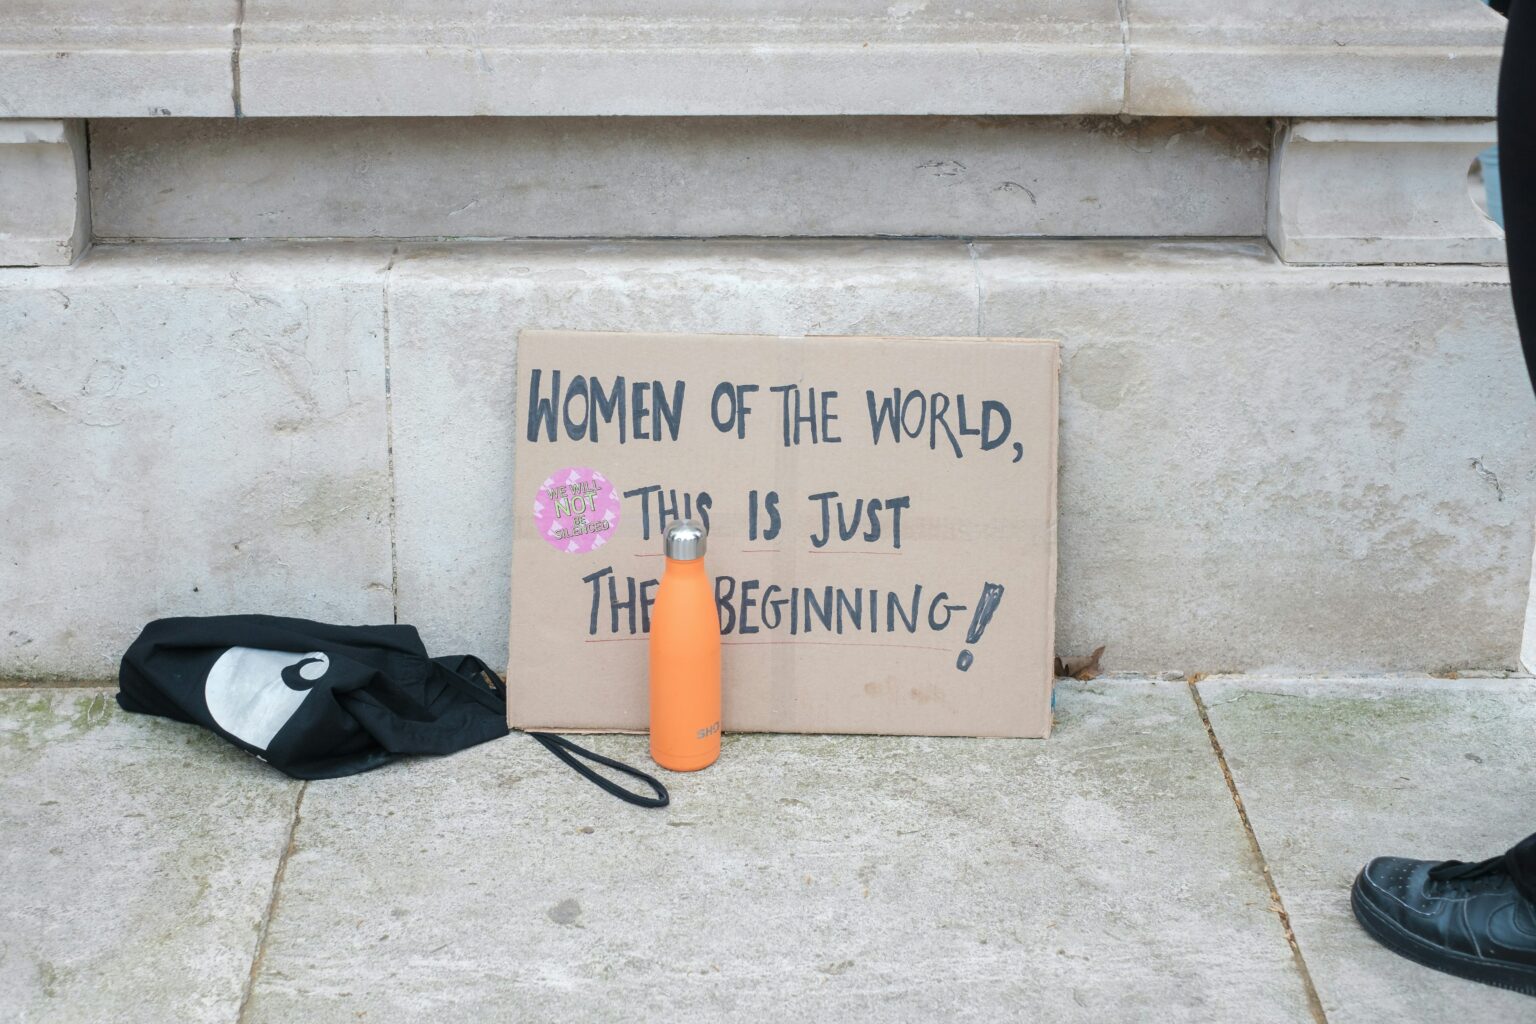 WOMEN OF THE WORLD,
WE WILL
NOT
BE
SILENCED
THIS IS JUST
THE BEGINNING!